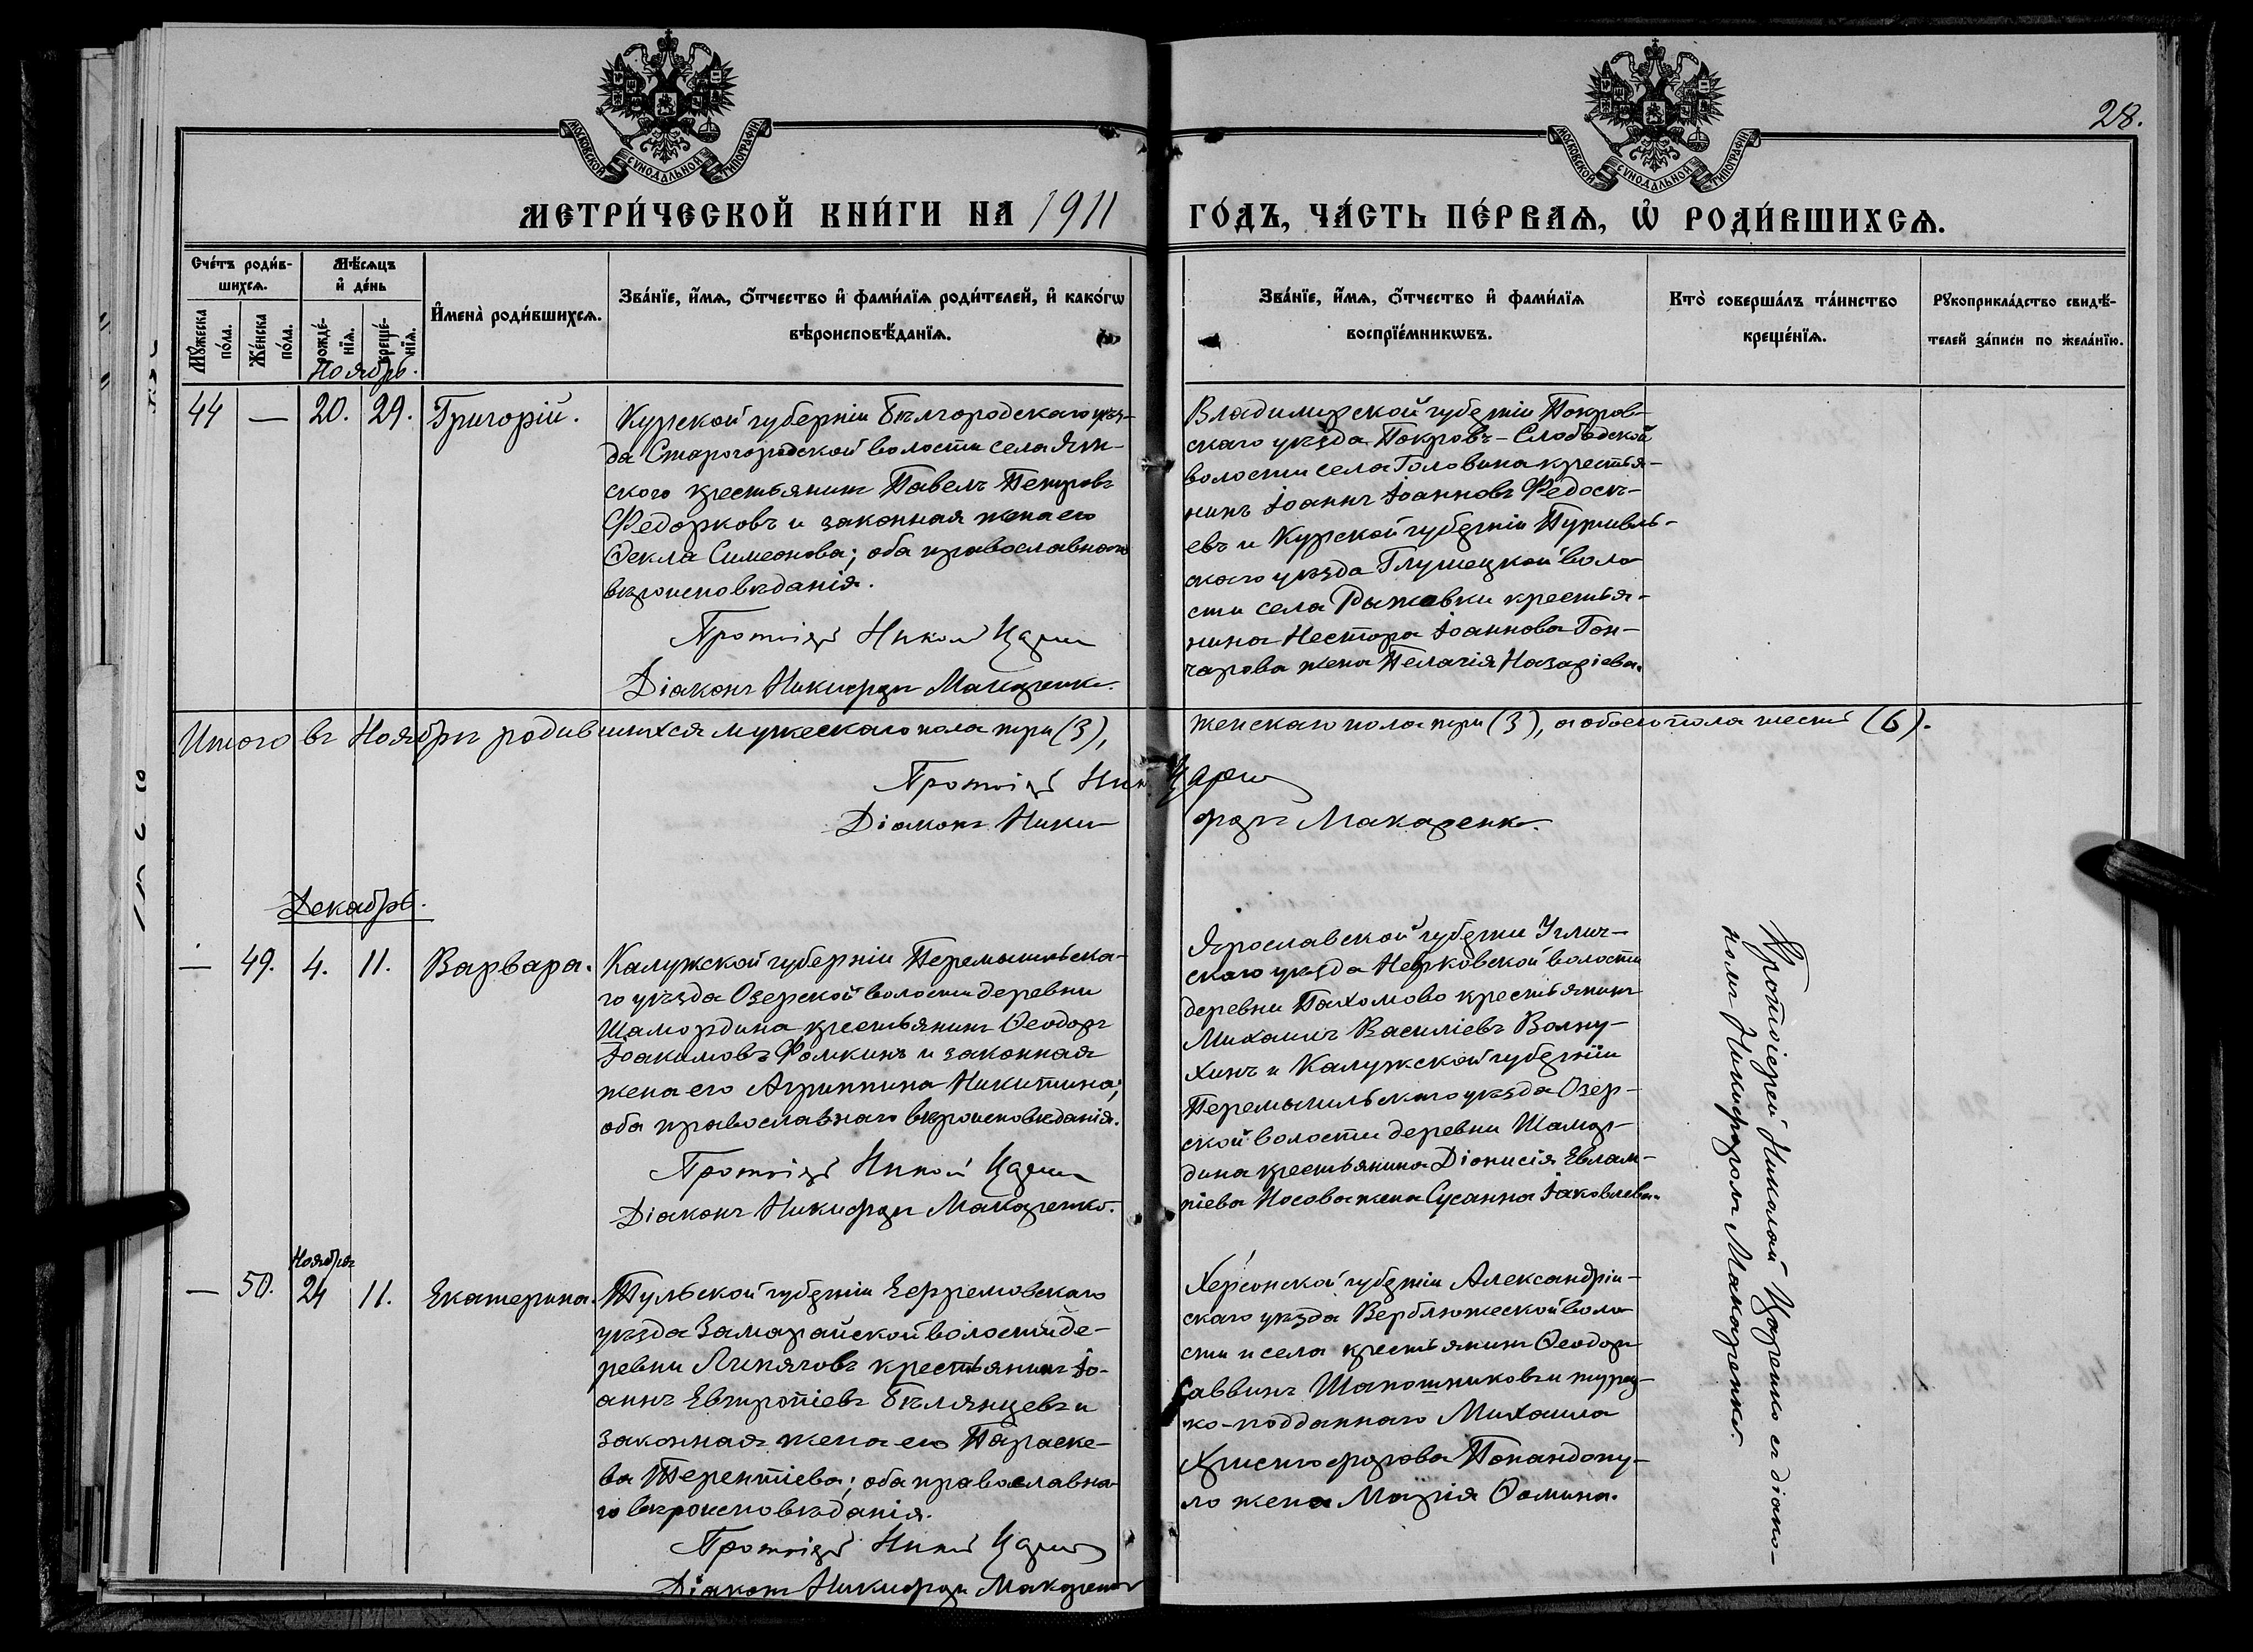 28.
МОСКОВСКОЙ СѴНОДАЛЬНОЙ ТИПОГРАФІИ
МОСКОВСКОЙ СѴНОДАЛЬНОЙ ТИПОГРАФІИ
МЕТРИ́ЧЕСКОЙ КНИ́ГИ НА 1911 ГО́ДЪ, ЧА́СТЬ ПЕ́РВАѦ, Ѡ҆ РОДИ́ВШИХСѦ.
Сче́тъ роди́в-
шихсѧ.
Мꙋ́жеска по́ла.
Же́нска по́ла.
Мѣ́сѧцъ
и҆ де́нь
рожде́-
нїѧ.
креще́-
нїѧ.
И҆мена̀ роди́вшихсѧ.
Зва́нїе, и҆́мѧ, ѻ҆́тчество и҆ фами́лїѧ роди́телей, и҆ како́гѡ
вѣроисповѣ́данїѧ.
Зва́нїе, и҆́мѧ, ѻ҆́тчество и҆ фами́лїѧ
воспрїе́мникѡвъ.
Кто̀ соверша́лъ та́инство
креще́нїѧ.
Рꙋкоприкла́дство свидѣ́-
телей за́писи по жела́нїю.
Ноябрь.
44 — 20. 29. Григорій.
Курской губерніи Бѣлгородскаго уѣз-
да Старогородской волости села
ского крестьянинъ Павелъ Петровъ
Федорковъ и законная жена его
Ѳекла Симеонова; оба православнаго
вѣроисповѣданія.
Протоіер Никол Царен
Діаконъ Никифоръ Макаренко.
Владимирской губерніи Покров-
скаго уѣзда Покровъ-Слободской
волости села Головина крестья-
нинъ Іоаннъ Іоанновъ Федосѣ-
евъ и Курской губерніи Путивль-
скаго уѣзда Глушецкой воло-
сти села Рыжевки крестья-
нина Нестора Іоаннова Гон-
чарова жена Пелагія Назаріева.
Итого въ Ноябрѣ родившихся мужескаго пола три (3), женскаго пола три (3), а обоего пола шесть (6).
Протоіер Ник Царен
Діаконъ Никифоръ Макаренко.
Декабрь.
— 49. 4. 11. Варвара.
Калужской губерніи Перемышльска-
го уѣзда Озерской волости деревни
Шамордина крестьянинъ Ѳеодоръ
Іоакимовъ Фомкинъ и законная
жена его Агриппина Никитина;
оба православнаго вѣроисповѣданія.
Протоіер Никол Царен
Діаконъ Никифоръ Макаренко.
Ярославской губерніи Углич-
скаго уѣзда Неркòвской волости
деревни Пахомово крестьянинъ
Михаилъ Василіевъ Волну-
хинъ и Калужской губерніи
Перемышльскаго уѣзда Озер-
ской волости деревни Шамор-
дина крестьянина Діонисія Евлам-
піева Носова жена Сусанна Іаковлева.
Протоіерей Николай Царенко съ діако-
номъ Никифоромъ Макаренко.
— 50. Ноября 24 11. Екатерина.
Тульской губерніи Ефремовскаго
уѣзда Замарайской волости де-
ревни Липяговъ крестьянинъ Іо-
аннъ Евтропіевъ Бѣлянцевъ и
законная жена его Параске-
ва Терентіева; оба православна-
го вѣроисповѣданія.
Протоіер Никол Царен
Діаконъ Никифоръ Макаренко
Херсонской губерніи Александрій-
скаго уѣзда Верблюжеской воло-
сти и села крестьянинъ Ѳеодоръ
Саввинъ Шапошниковъ и турец-
ко-подданнаго Михаила
Христофорова Попандопу-
ло жена Марія Ѳомина.